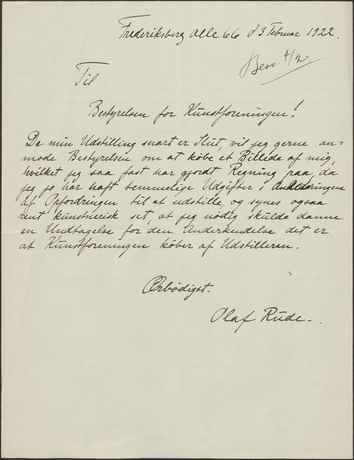 Frederiksberg Alle 66 d 3 Februar 1922.
Besv 4/2
Til
Bestyrelsen for Kunstforeningen!
Da min Udstilling snart er Slut, vil jeg gerne an-
mode Bestyrelsen om at købe et Billede af mig,
hvilket jeg saa fast har gjordt Regning paa, da
jeg jo har haft temmelige Udgifter i Anledningen
af Opfordringen til at udstille, og synes ogsaa
rent kunstnerisk set, at jeg nødig skulde danne
en Undtagelse for den Anerkendelse det er
at Kunstforeningen køber af Udstilleren.
Ærbødigst.
Olaf Rude.